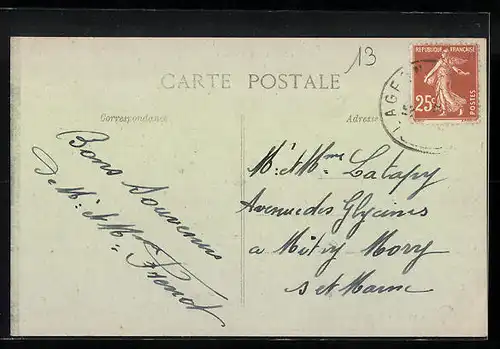 13
CARTE POSTALE
Correspondance
Adresse
REPUBLIQUE FRANÇAISE
25c
POSTES
LAGE
Bons Souvenirs
De Mr. et Mme
Mr. et Mme Latapy
Avenue des Glycines
a Mitry Mory
S et Marne